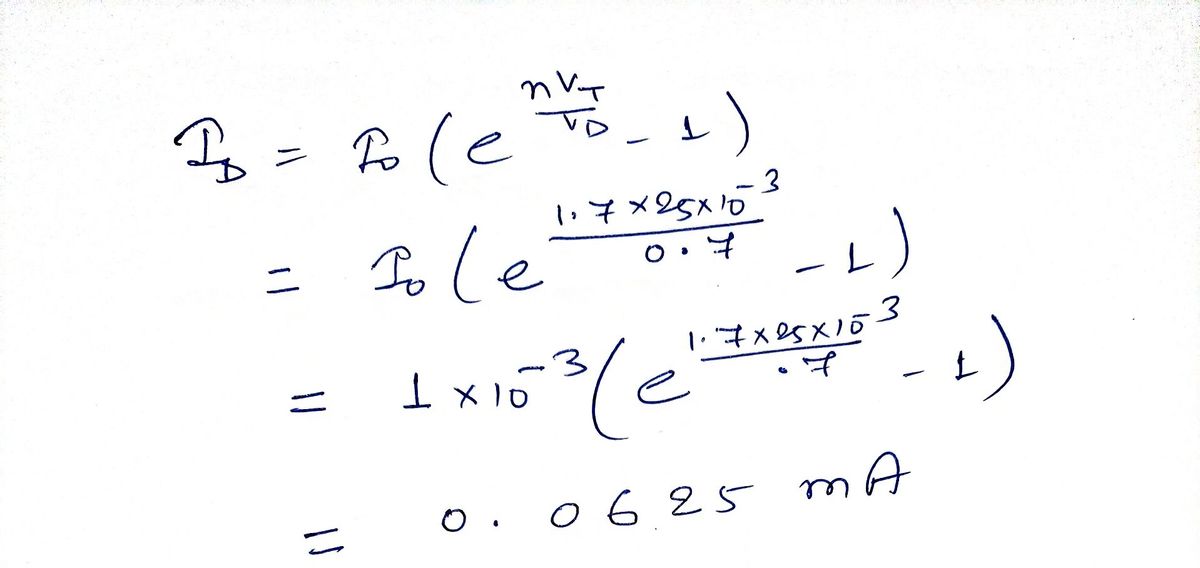 I_D = I_0 ( e^{\frac{nV_T}{V_D}} - 1 )
= I_0 ( e^{\frac{1.7 \times 25 \times 10^{-3}}{0.7}} - 1 )
= 1 \times 10^{-3} ( e^{\frac{1.7 \times 25 \times 10^{-3}}{.7}} - 1 )
= 0.0625 mA